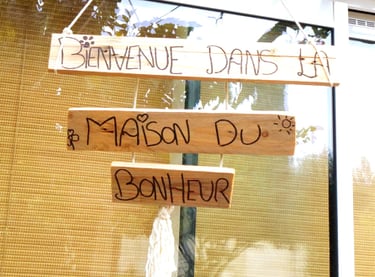 BIENVENUE DANS LA
MAISON DU
BONHEUR